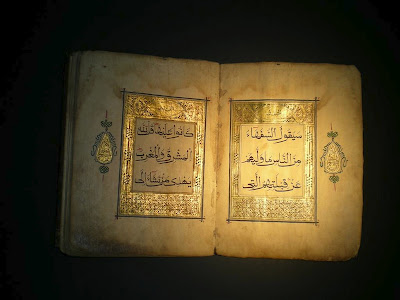 سيقول السفهاء
من الناس ما وليهم
عن قبلتهم التي
كانوا عليها قل لله
المشرق والمغرب
يهدي من يشاء إلى